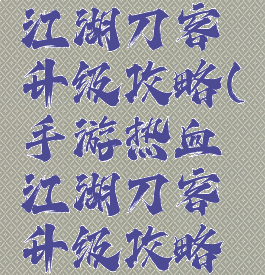 江湖刀客
升级攻略(
手游热血
江湖刀客
升级攻略